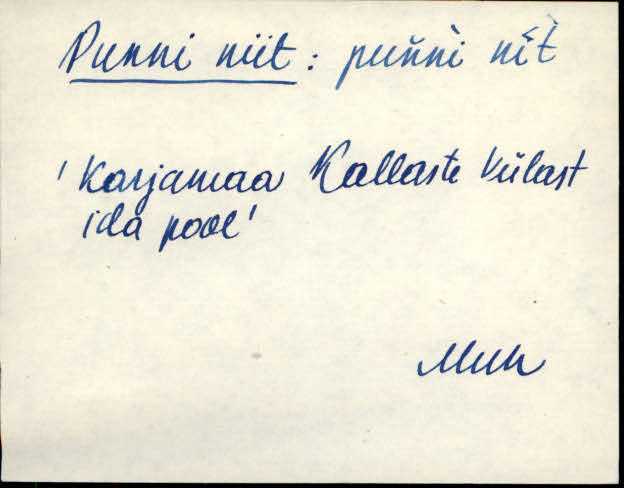 Punni niit : puǹǹi nīt̀
'Karjamaa Kallaste külast
ida pool'
Muh